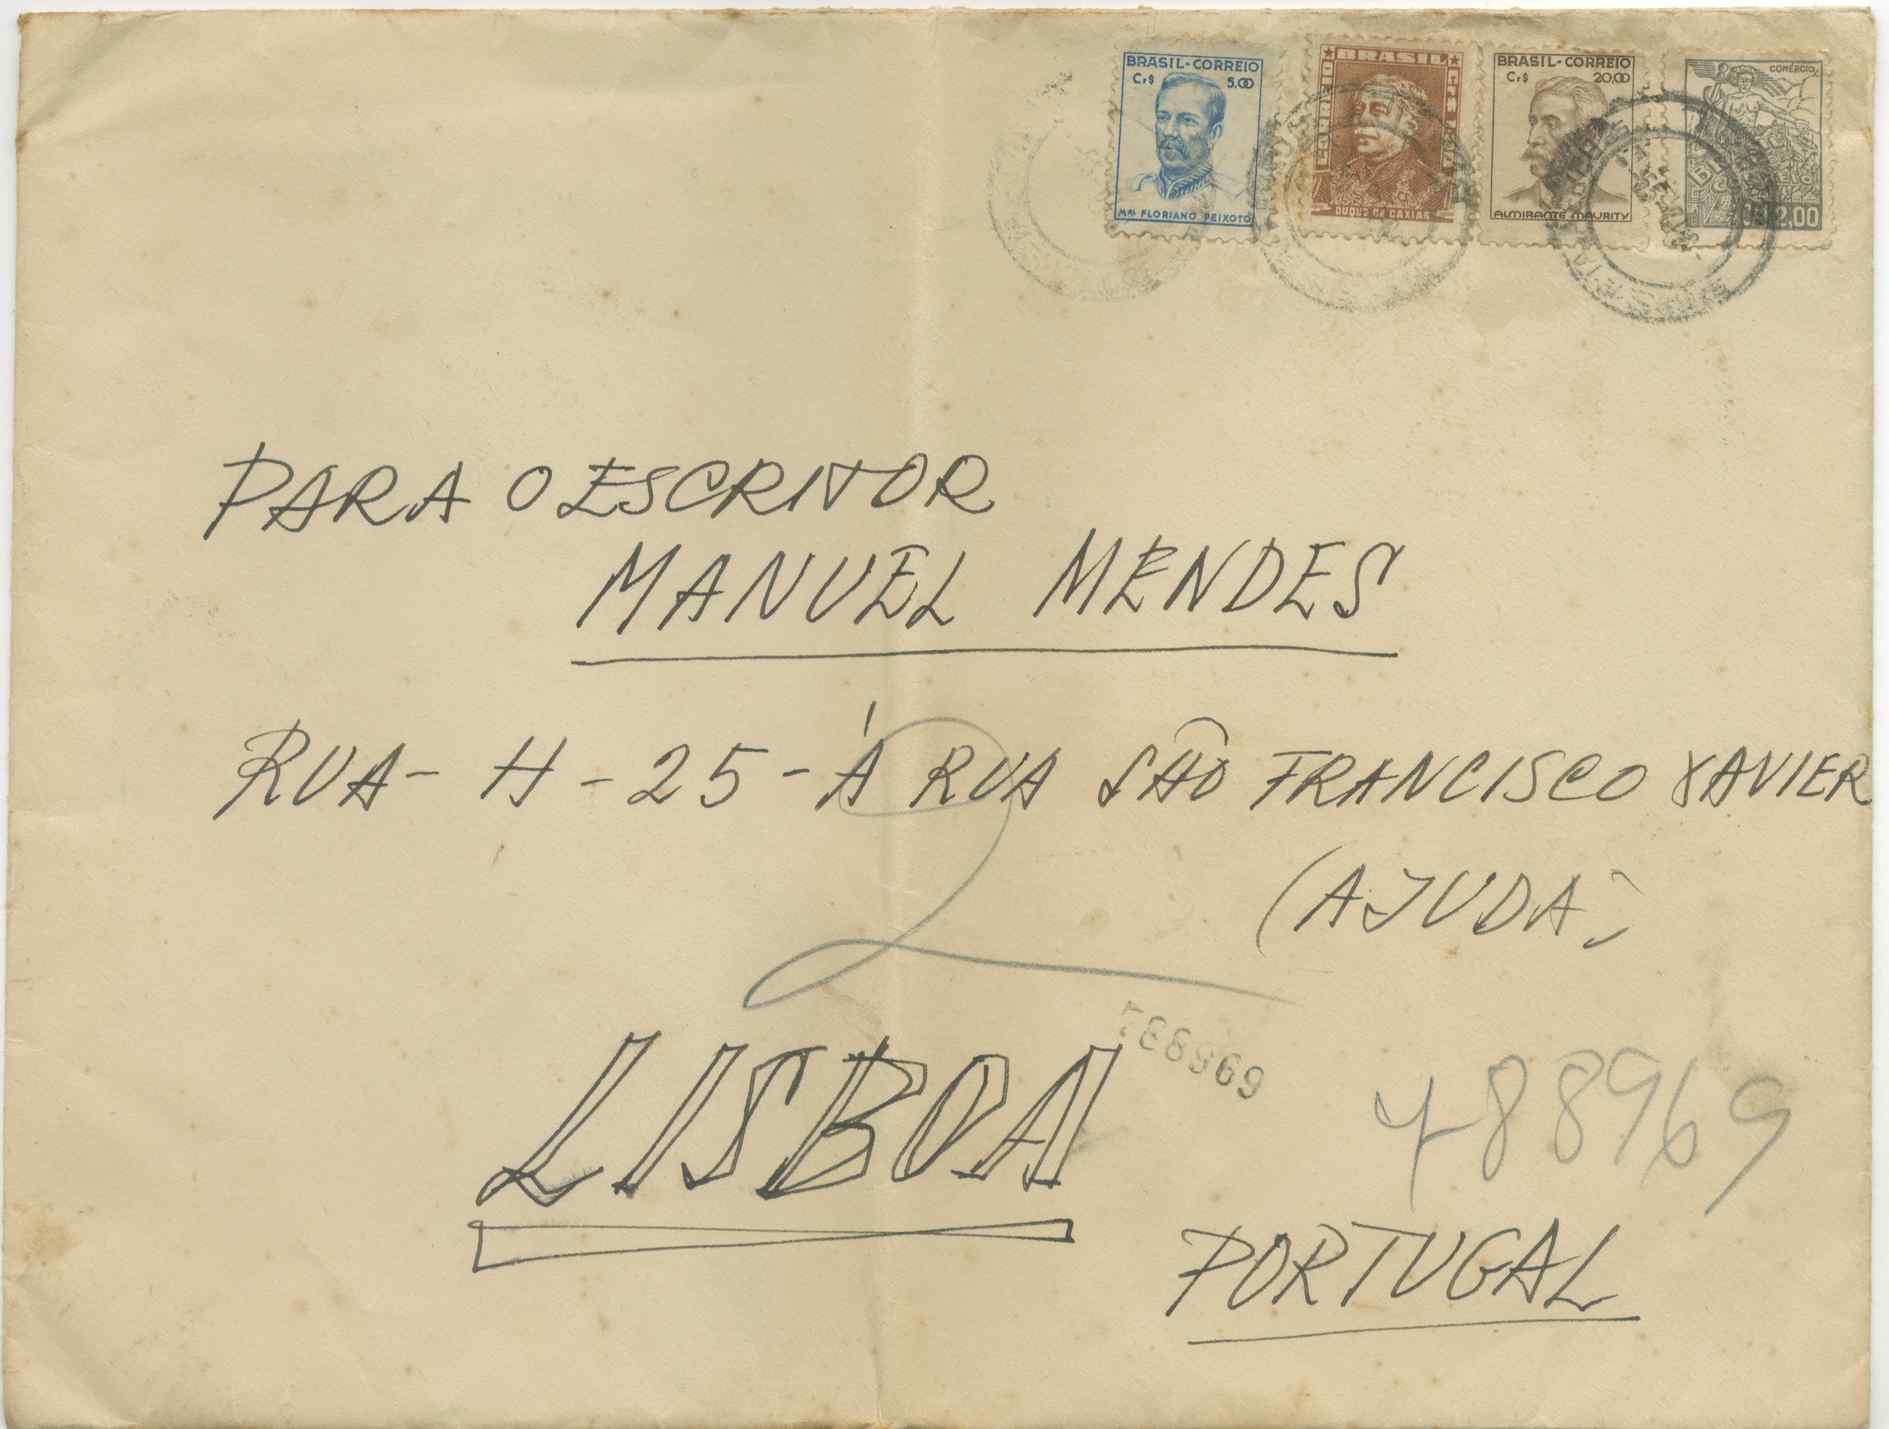 BRASIL-CORREIO
Cr$ 5.00
Mal FLORIANO PEIXOTO
BRASIL
CORREIO
DUQUE DE CAXIAS
BRASIL-CORREIO
Cr$ 20,00
ALMIRANTE MAURITY
COMÉRCIO
2,00
PARA O ESCRITOR
MANUEL MENDES
RUA - H - 25 - À RUA SÃO FRANCISCO XAVIER
(AJUDA)
2
LISBOA
488969
PORTUGAL